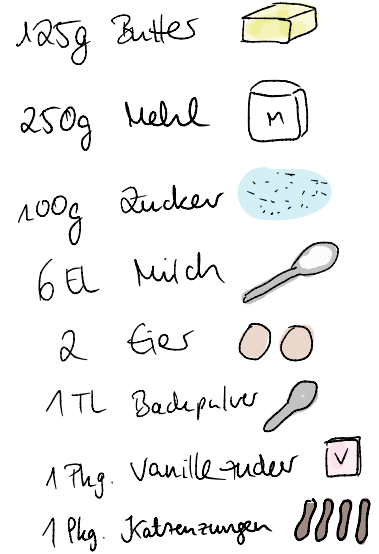 125g Butter
250g Mehl
M
100g Zucker
6 EL Milch
2 Eier
1 TL Backpulver
1 Pkg. Vanillezucker
V
1 Pkg. Katzenzungen